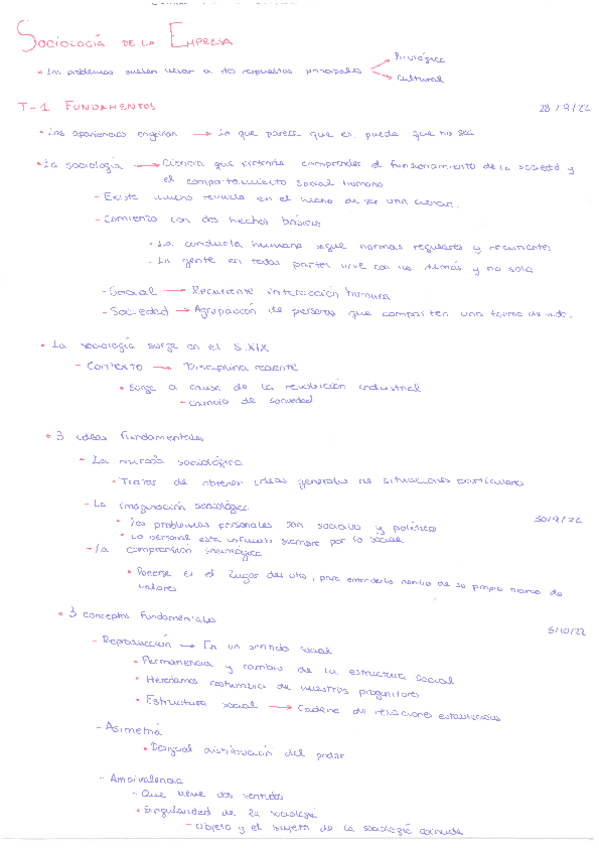 SOCIOLOGÍA DE LA EMPRESA
• Los problemas suelen llevar a dos respuestas principales → Biológica
→ Cultural
T-1 FUNDAMENTOS 28/9/22
• Las apariencias engañan → lo que parece que es, puede que no sea
• La sociología → Ciencia que pretende comprender el funcionamiento de la sociedad y
el comportamiento social humano
- Existe mucho revuelo en el hecho de ser una ciencia.
- Comienza con dos hechos básicos
• La conducta humana sigue normas regulares y recurrentes
• La gente en todas partes vive con los demás y no sola
- Social → Recurrente interacción humana
- Sociedad → Agrupación de personas que comparten una forma de vida.
• La sociología surge en el S.XIX
- Contexto → Disciplina reciente
• Surge a causa de la revolución industrial
- Cambio de sociedad
• 3 ideas fundamentales
- La mirada sociológica
• Tratar de obtener ideas generales de situaciones particulares
- La imaginación sociológica 30/9/22
• Los problemas personales son sociales y políticos
• Lo personal está influido siempre por lo social
- La comprensión sociológica
• Ponerse en el lugar del otro, para entenderlo dentro de su propio marco de
valores
• 3 conceptos fundamentales 5/10/22
- Reproducción → En un sentido social
• Permanencia y cambio de la estructura social
• Heredamos costumbres de nuestros progenitores
• Estructura social → Cadena de relaciones establecidas
- Asimetría
• Desigual distribución del poder
- Ambivalencia
- Que tiene dos sentidos
• Singularidad de la sociología
- Objeto y el sujeto de la sociología coincide